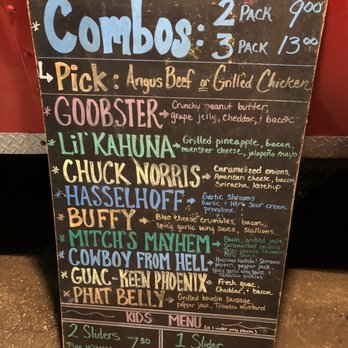 Combos: 2 PACK 9.00
3 PACK 13.00
Pick: Angus Beef or Grilled Chicken
GOOBSTER → Crunchy peanut butter,
grape jelly, cheddar, & bacon
LIL' KAHUNA → Grilled pineapple, bacon,
munster cheese, jalapeño mayo
CHUCK NORRIS → Caramelized onions,
American cheese, bacon
Sriracha ketchup
HASSELHOFF → Garlic Shrooms
Garlic + Herb sour cream
provolone
BUFFY → Bleu cheese crumbles, bacon,
spicy garlic wing sauce, scallions
MITCH'S MAYHEM → Bacon, grilled japs,
caramelized onions
COWBOY FROM HELL → Roasted habañero + Serrano
peppers, pepper jack,
spicy garlic wing sauce +
GUAC-KEEN PHOENIX → Fresh guac,
cheddar, & bacon
PHAT BELLY → Grilled boudin Sausage,
pepper jack, Tobasco mustard
KIDS MENU
2 Sliders 7.50
1 Slider